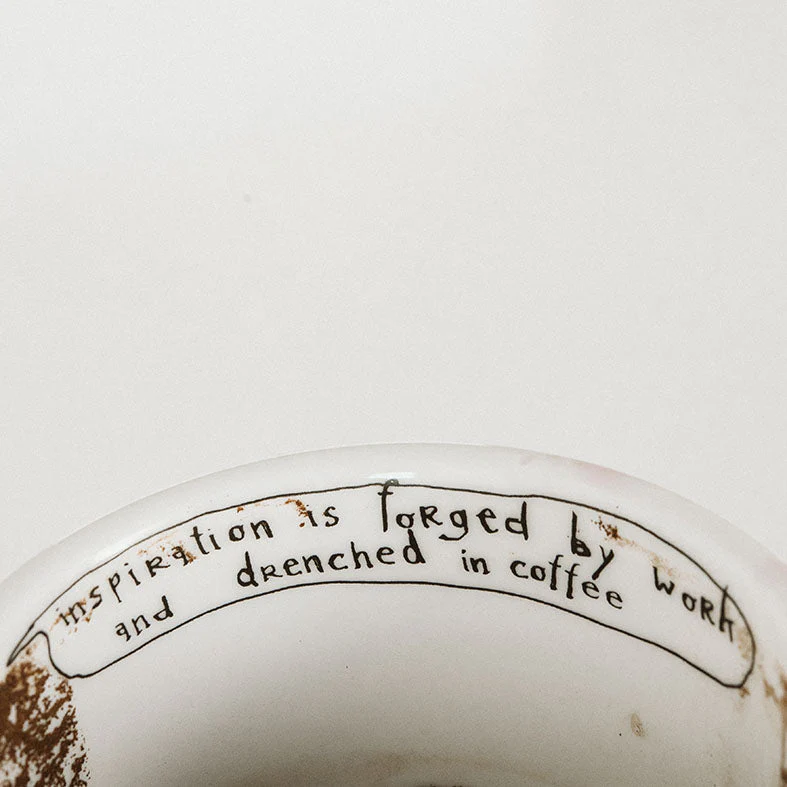 inspiration is forged by work
and drenched in coffee